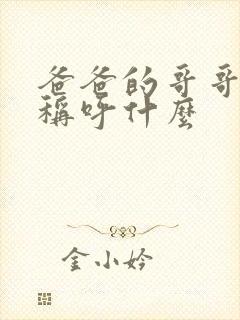 爸爸的哥哥
稱呼什麼
金小妗